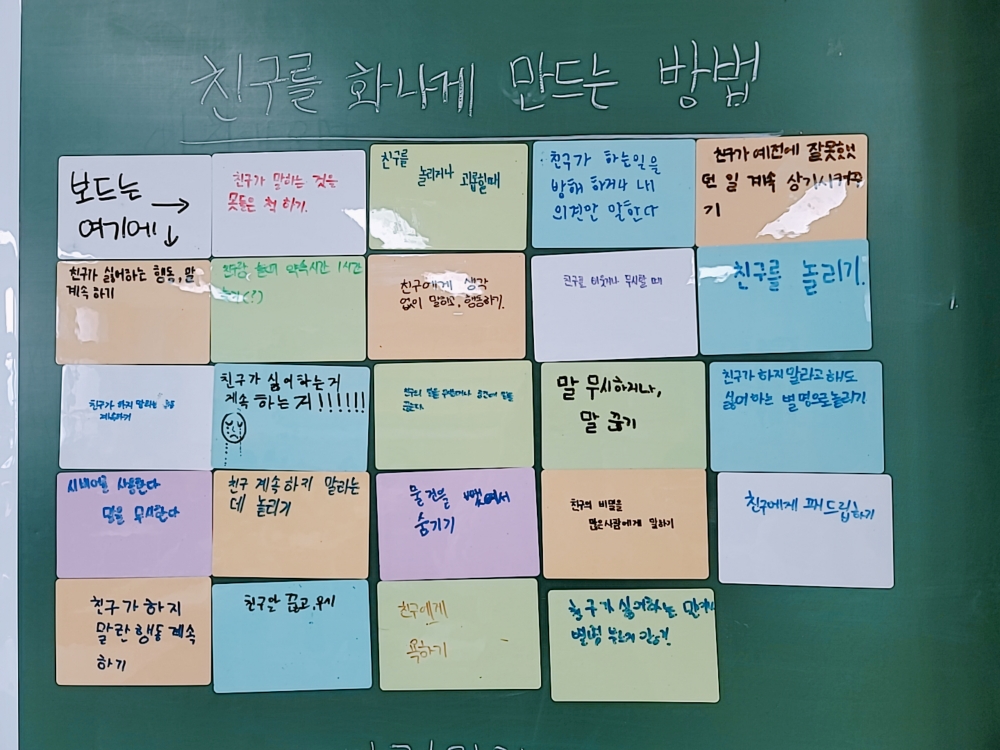 친구를 화나게 만드는 방법
보드는 →
여기에↓
친구가 말하는 것을
못들은 척 하기.
친구를
놀리거나 괴롭힐때
친구가 하는일을
방해 하거나 내
의견만 말한다
친구가 예전에 잘못했
던 일 계속 상기시켜주
기
친구가 싫어하는 행동, 말
계속 하기
약속시간 1시간
친구에게 생각
없이 말하고, 행동하기.
친구를 비웃거나 무시할 때
친구를 놀리기.
친구가 하지 말라는
계속하기
친구가 싫어하는거
계속 하는거!!!!!!!
친구의 말을
말 무시하거나,
말 끊기
친구가 하지말라고 해도
싫어하는 별명으로놀리기
사용한다
말을 무시한다
친구 계속 하지 말라는
데 놀리기
물건을 뺏어서
숨기기
친구의 비밀을
많은사람에게 말하기
친구에게 꼬드립하기
친구가 하지
말란 행동 계속
하기
친구말 끊고, 무시
친구에게
욕하기
친구가 싫어하는
별명